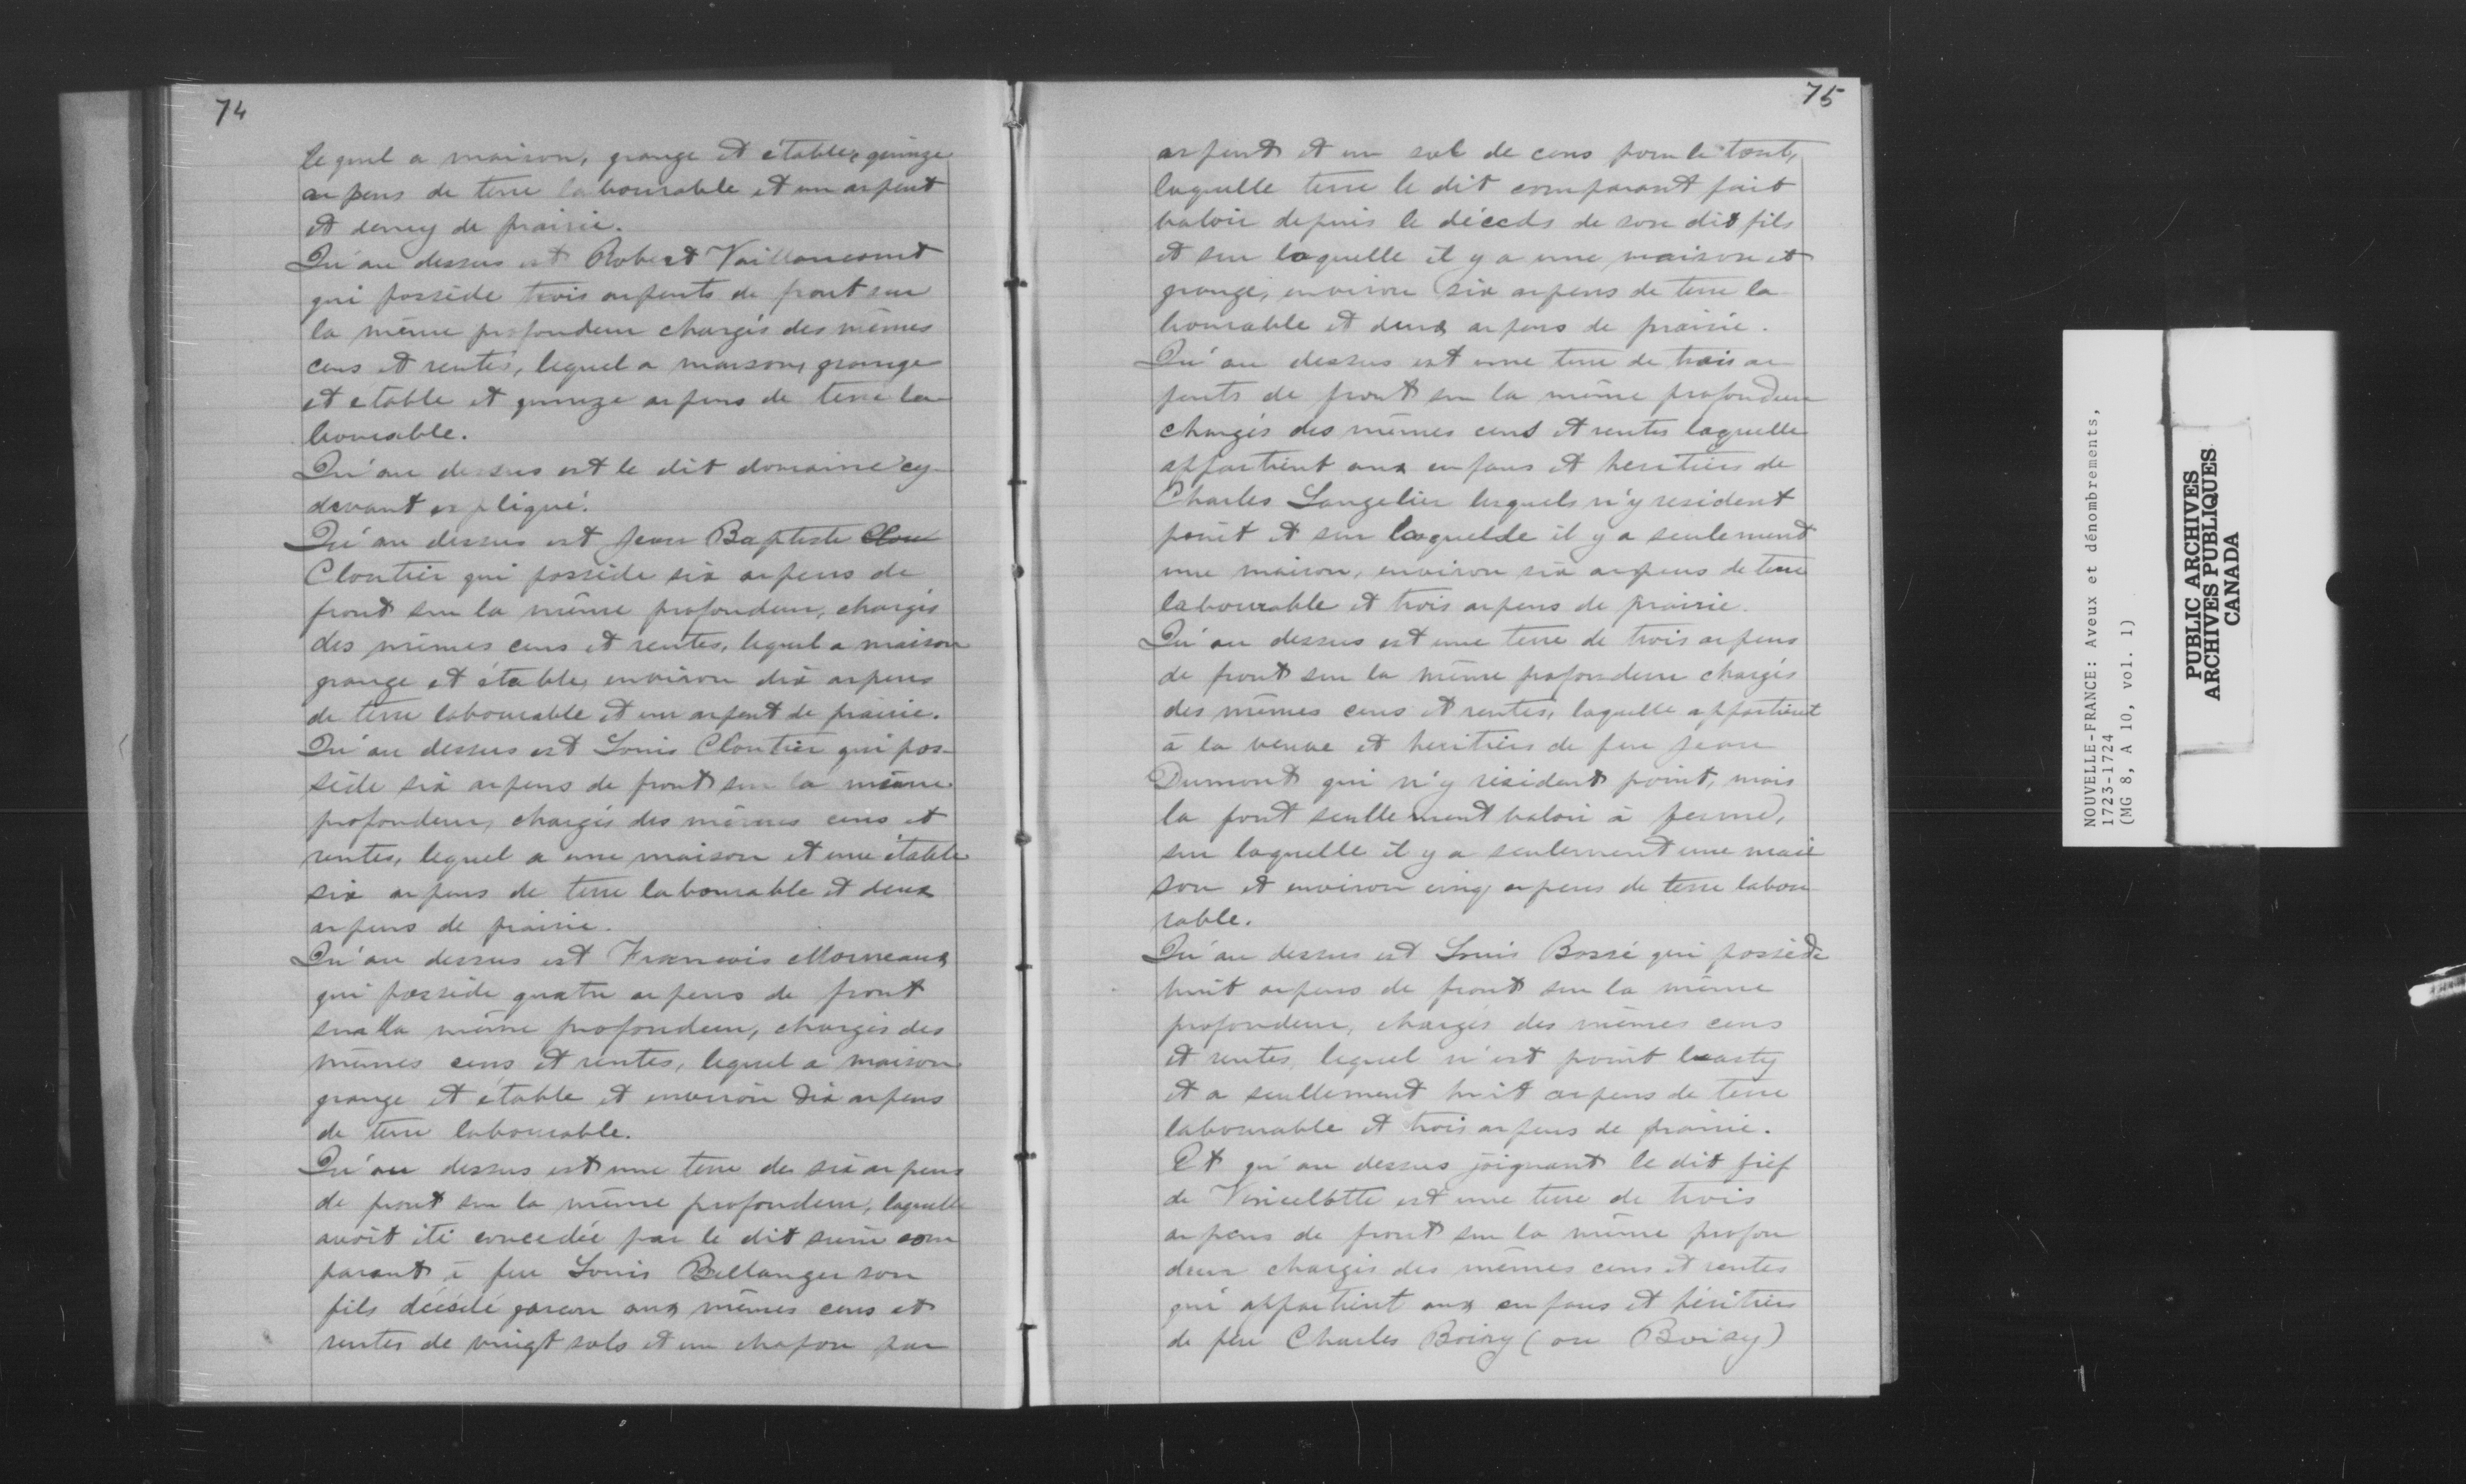 74
lequel a maison, grange et étable, quinze
arpens de terre labourable et un arpent
et demy de prairie.
Qu'au dessus est Robert Vaillancourt
qui possède trois arpents de front sur
la même profondeur chargés des mêmes
cens et rentes, lequel a maison, grange
et étable et quinze arpens de terre la
bourable.
Qu'au dessus est le dit domaine cy-
devant expliqué.
Qu'au dessus est Jean Baptiste Clou
Cloutier qui possède six arpens de
front sur la même profondeur, chargés
des mêmes cens et rentes, lequel a maison
grange et étable, environ dix arpens
de terre labourable et un arpent de prairie.
Qu'au dessus est Louis Cloutier qui pos-
sède six arpens de front sur la même
profondeur, chargés des mêmes cens et
rentes, lequel a une maison et une étable
six arpens de terre labourable et deux
arpens de prairie.
Qu'au dessus est Francois Morneaux
qui possède quatre arpens de front
sur la même profondeur, chargés des
mêmes cens et rentes, lequel a maison
grange et étable et environ dix arpens
de terre labourable.
Qu'au dessus est une terre de six arpens
de front sur la même profondeur, laquelle
avoit été concedée par le dit sieur com
parant à feu Louis Bellanger son
fils décédé garcon aux mêmes cens et
rentes de vingt sols et un chapon par
75
arpent et un sol de cens pour le tout,
laquelle terre le dit comparant fait
valoir depuis le déceds de son dit fils
et sur laquelle il y a une maison et
grange, environ six arpens de terre la
bourable et deux arpens de prairie.
Qu'au dessus est une terre de trois ar
pents de front sur la même profondeur
chargés des mêmes cens et rentes laquelle
appartient aux enfans et heritiers de
Charles Langelier lesquels n'y resident
point et sur laquelle il y a seulement
une maison, environ six arpens de terre
labourable et trois arpens de prairie.
Qu'au dessus est une terre de trois arpens
de front sur la même profondeur chargés
des mêmes cens et rentes, laquelle appartient
à la veuve et heritiers de feu Jean
Dumont qui n'y résident point, mais
la font seullement valoir à ferme,
sur laquelle il y a seulement une mai
son et environ cinq arpens de terre labou
rable.
Qu'au dessus est Louis Bossé qui possède
huit arpens de front sur la même
profondeur, chargés des mêmes cens
et rentes, lequel n'est point basty
et a seullement huit arpens de terre
labourable et trois arpens de prairie.
Et qu'au dessus joignant le dit fief
de Vincelotte est une terre de trois
arpens de front sur la même profon
deur chargés des mêmes cens et rentes
qui appartient aux enfans et héritiers
de feu Charles Boiry (ou Boisy)
NOUVELLE-FRANCE: Aveux et dénombrements,
1723-1724
(MG 8, A 10, vol. 1)
PUBLIC ARCHIVES
ARCHIVES PUBLIQUES
CANADA